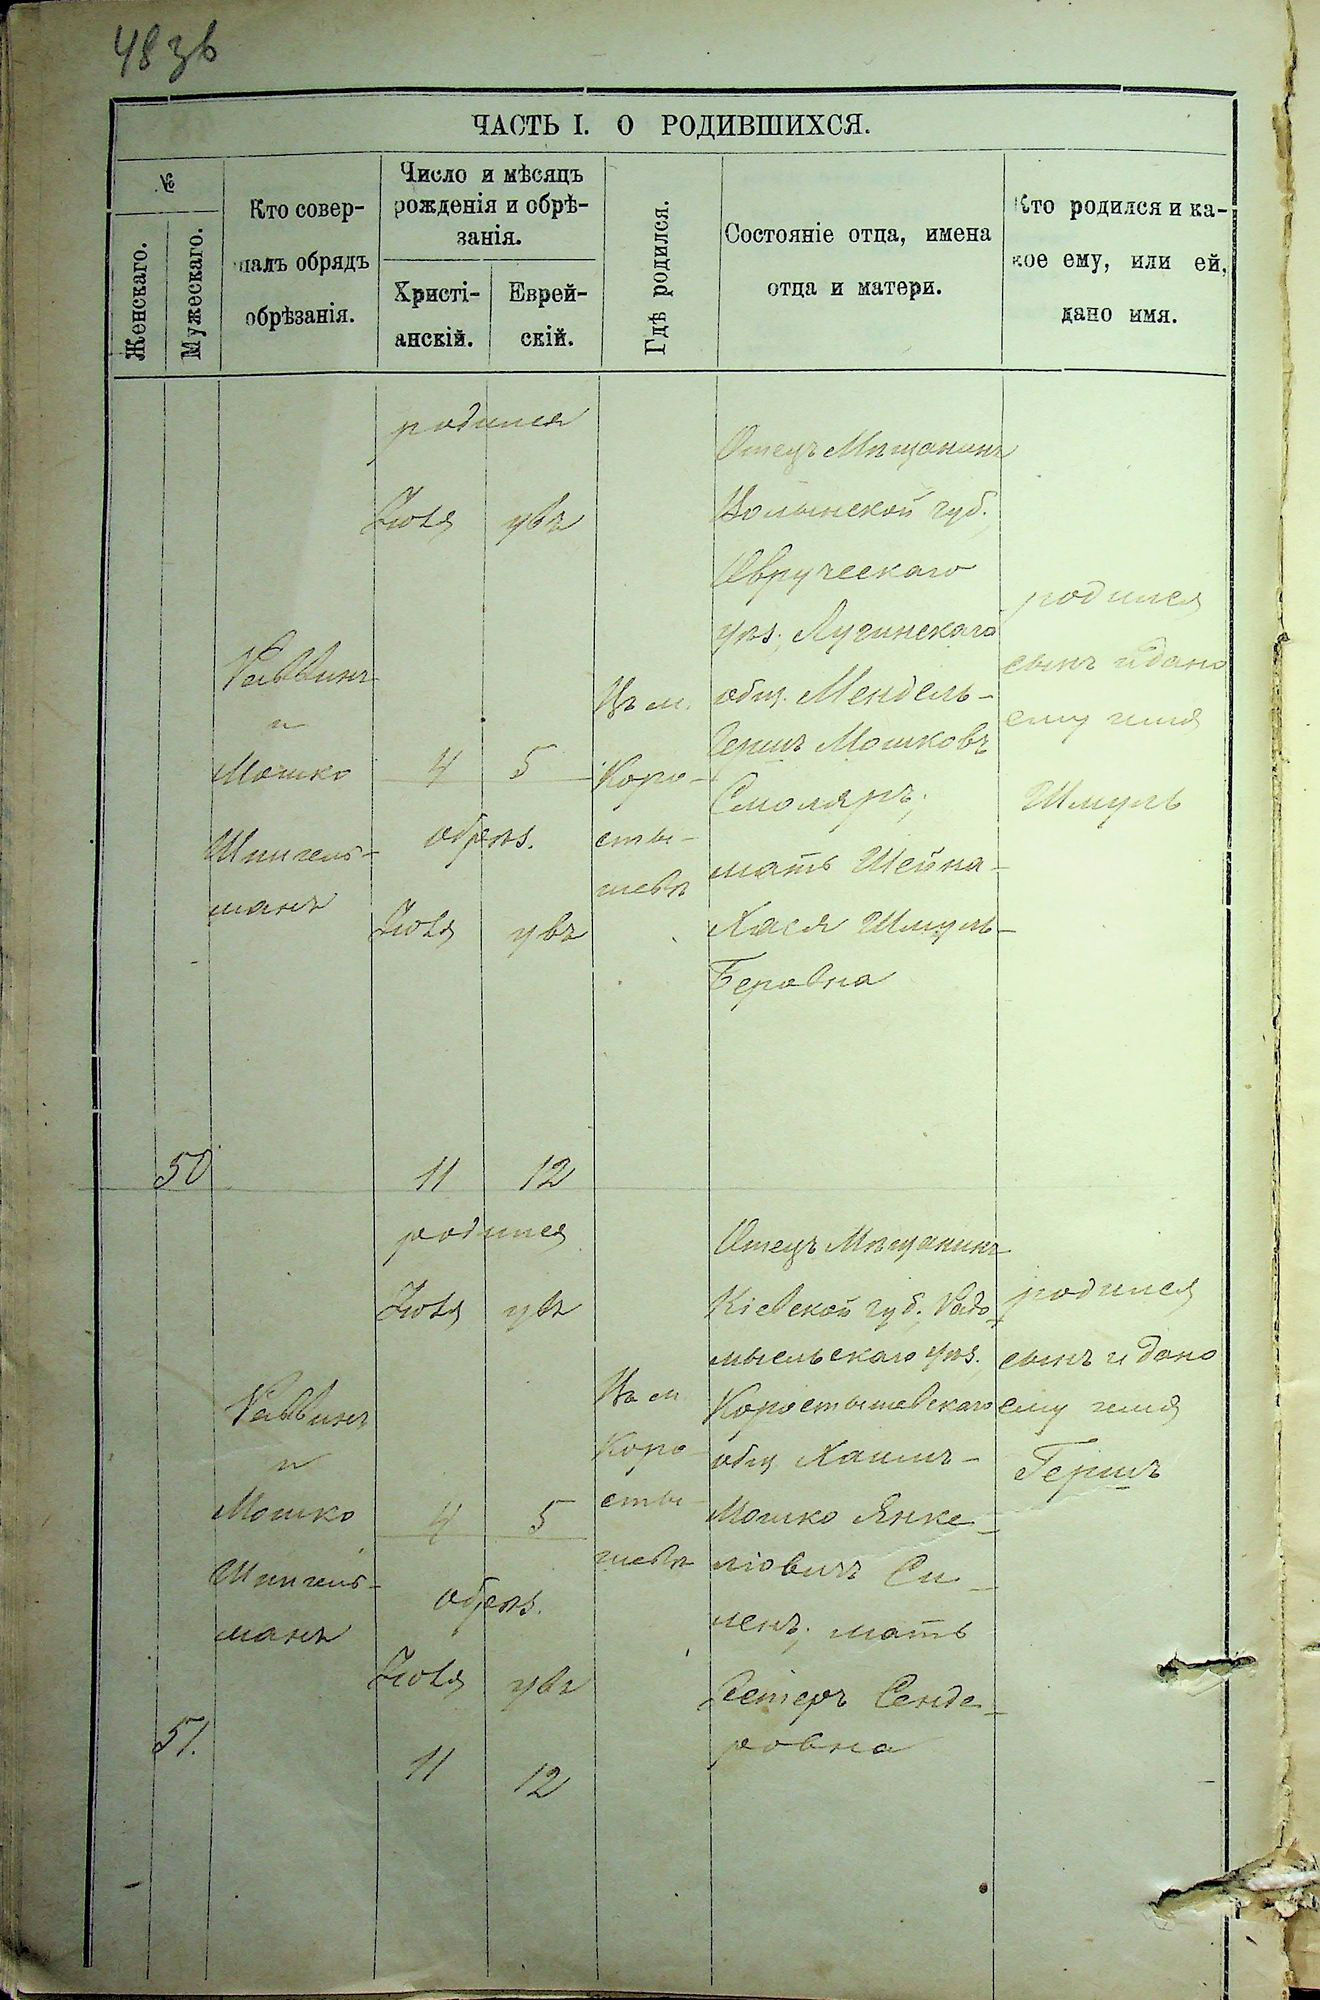 48 зв
ЧАСТЬ I. О РОДИВШИХСЯ.
№
Женскаго.
Мужескаго.
Кто совер-
шалъ обрядъ
обрѣзанія.
Число и мѣсяцъ
рожденія и обрѣ-
занія.
Христі-
анскій.
Еврей-
скій.
Гдѣ родился.
Состояніе отца, имена
отца и матери.
Кто родился и ка-
кое ему, или ей,
дано имя.
50
Раввинъ
и
Мошко
Шпигель-
манъ
родился
Іюля
4
обрѣз.
Іюля
11
5
12
Въ м.
Коро-
сты-
шевѣ
Отецъ Мѣщанинъ
Волынской губ.,
Овруческаго
уѣз. Лугинскаго
общ. Мендель-
Гершъ Мошковъ
Смоляръ,
мать Шейна-
Хася Шмуль-
Беровна
родился
сынъ и дано
ему имя
Шмуль
51.
Раввинъ
и
Мошко
Шпигель-
манъ
родился
Іюля
4
обрѣз.
Іюля
11
5
12
Въ м
Коро-
сты-
шевѣ
Отецъ Мѣщанинъ
Кіевской губ., Радо-
мысльскаго уѣз.
Коростышевскаго
общ Хаимъ-
Мошко Янке-
ліовичъ
мать
Естеръ Сенде-
ровна
родился
сынъ и дано
ему имя
Гершъ